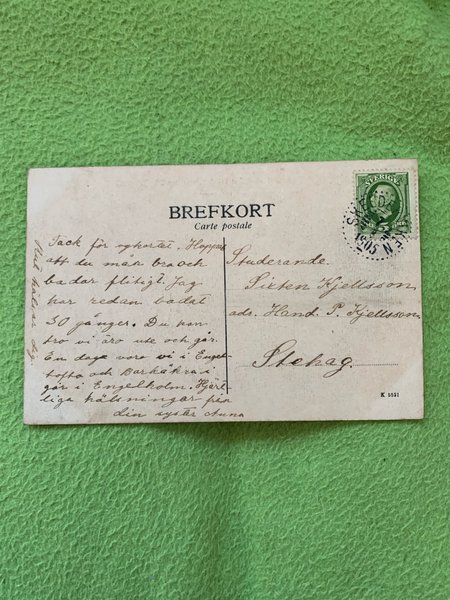 BREFKORT
Carte postale
SVERIGE
5
Tack för vykortet. Hoppas
att du mår bra och
badar flitigt. Jag
har redan badat
30 gånger. Du kan
tro vi äro ute och går.
En dag voro vi i Engel-
tofta och Barkåkra i
går i Engelholm. Hjärt-
liga hälsningar från
din syster Anna
hälsar dig.
Studerande
Sixten Kjellsson
adr. Hand. P. Kjellsson
Stehag.
K 5531